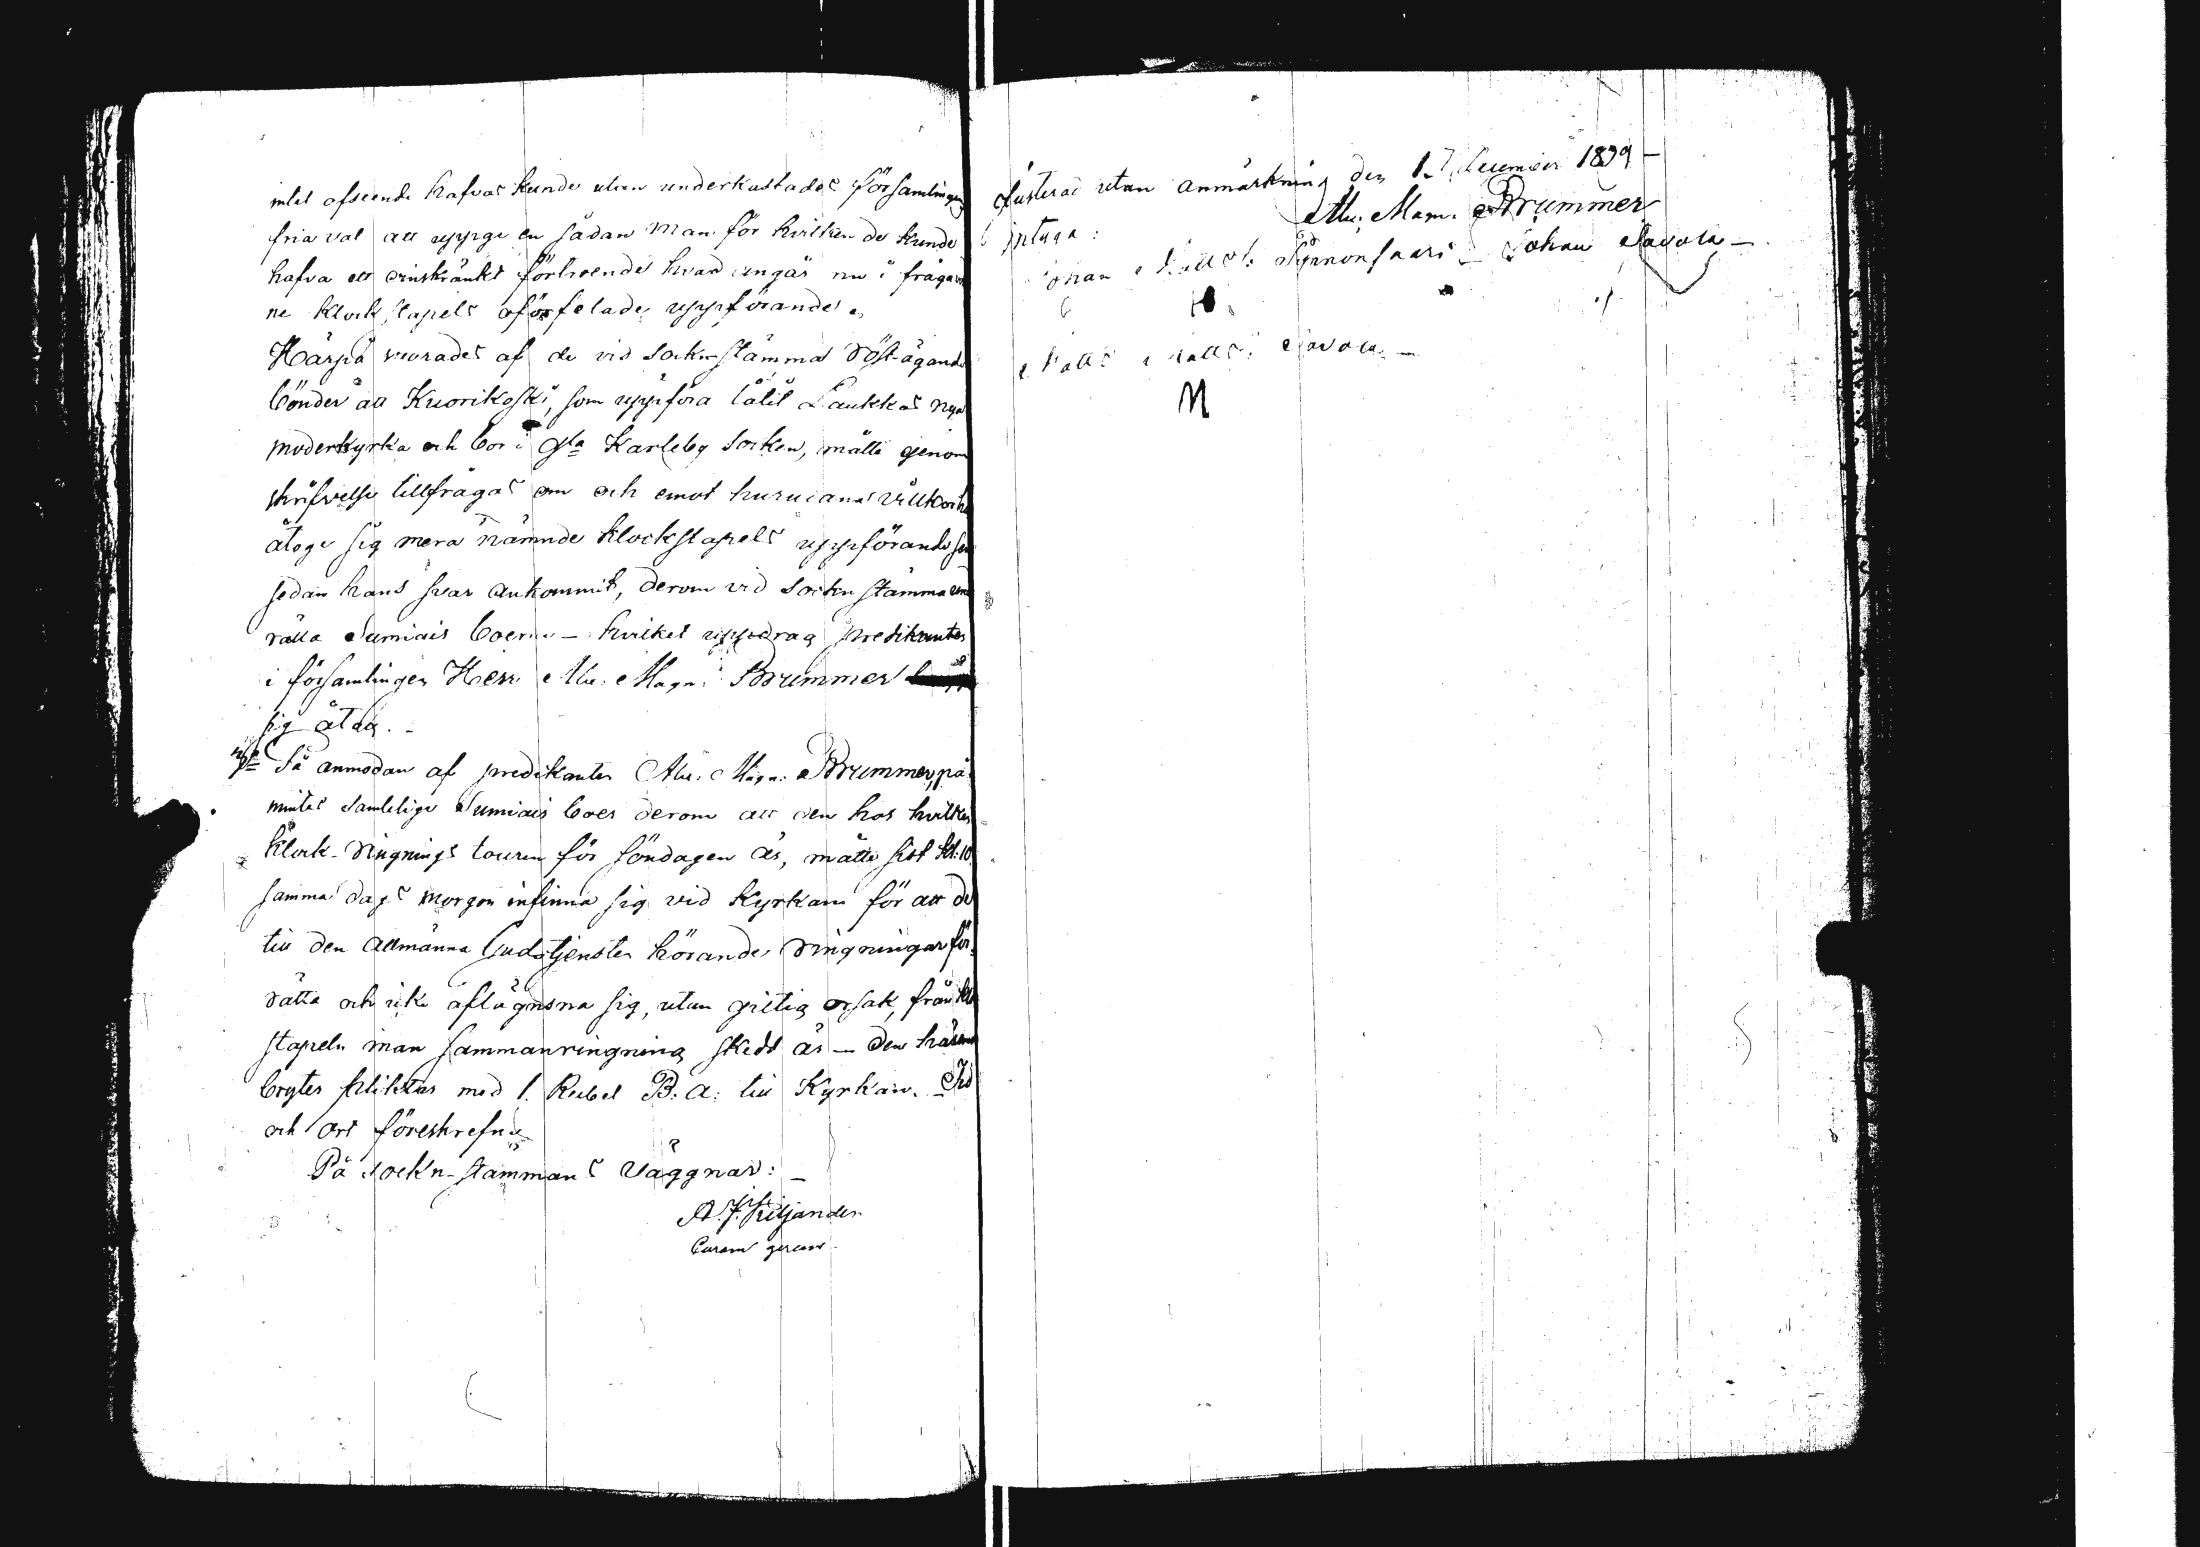 intet afseende hafvas kunde utan underkastades församlingens
fria val att uppge en sådan man för hvilken de kunde
hafva ett oinskränkt förtroende hvad angår nu i fråga va-
ne klockstapels oförfelade uppförande.
Härpå svarades af de vid Sockn-stämma Röst-ägande
bönder att Kuorikoski, som uppföra låtit Laukkas nya
moderkyrka och bor i Gla Karleby Socken, måtte genom
skrifvelse tillfrågas om och emot hurudana villkor han
åtoge sig mera nämnde klockstapels uppförande
sedan hans svar ankommit, derom vid Sockn stämma und
rätta Sumiais boerne – hvilket uppdrag predikanten
i församlingen Herr Abr. Magn: Brummer
sig åtog. -
På anmodan af predikanten Abr. Magn: Brummer, på-
mintes samtelige Sumiais boer derom att den hos hvilken
klock-Ringnings touren för söndagen är, måtte sist kl: 10
samma dags morgon infinna sig vid Kyrkan för att de
till den allmänna Gudstjensten hörande Ringningar för-
rätta och icke aflägnsna sig, utan giltig orsak, från klock
stapeln innan sammanringning skedt är – den häremot
bryter pliktar med 1. Rubel B: a: till Kyrkan. Tid
och Ort föreskrefne
På Sockn-stämmans väggnar: –
A. J. Kiljander
Curam gerens.
Justerad utan anmärkning den 17 December 1839 –
Abr. Magn. Brummer
intyga:
Johan Matts: Pynnönsaari – Johan Savola –
Matts Matts: Savola –
M